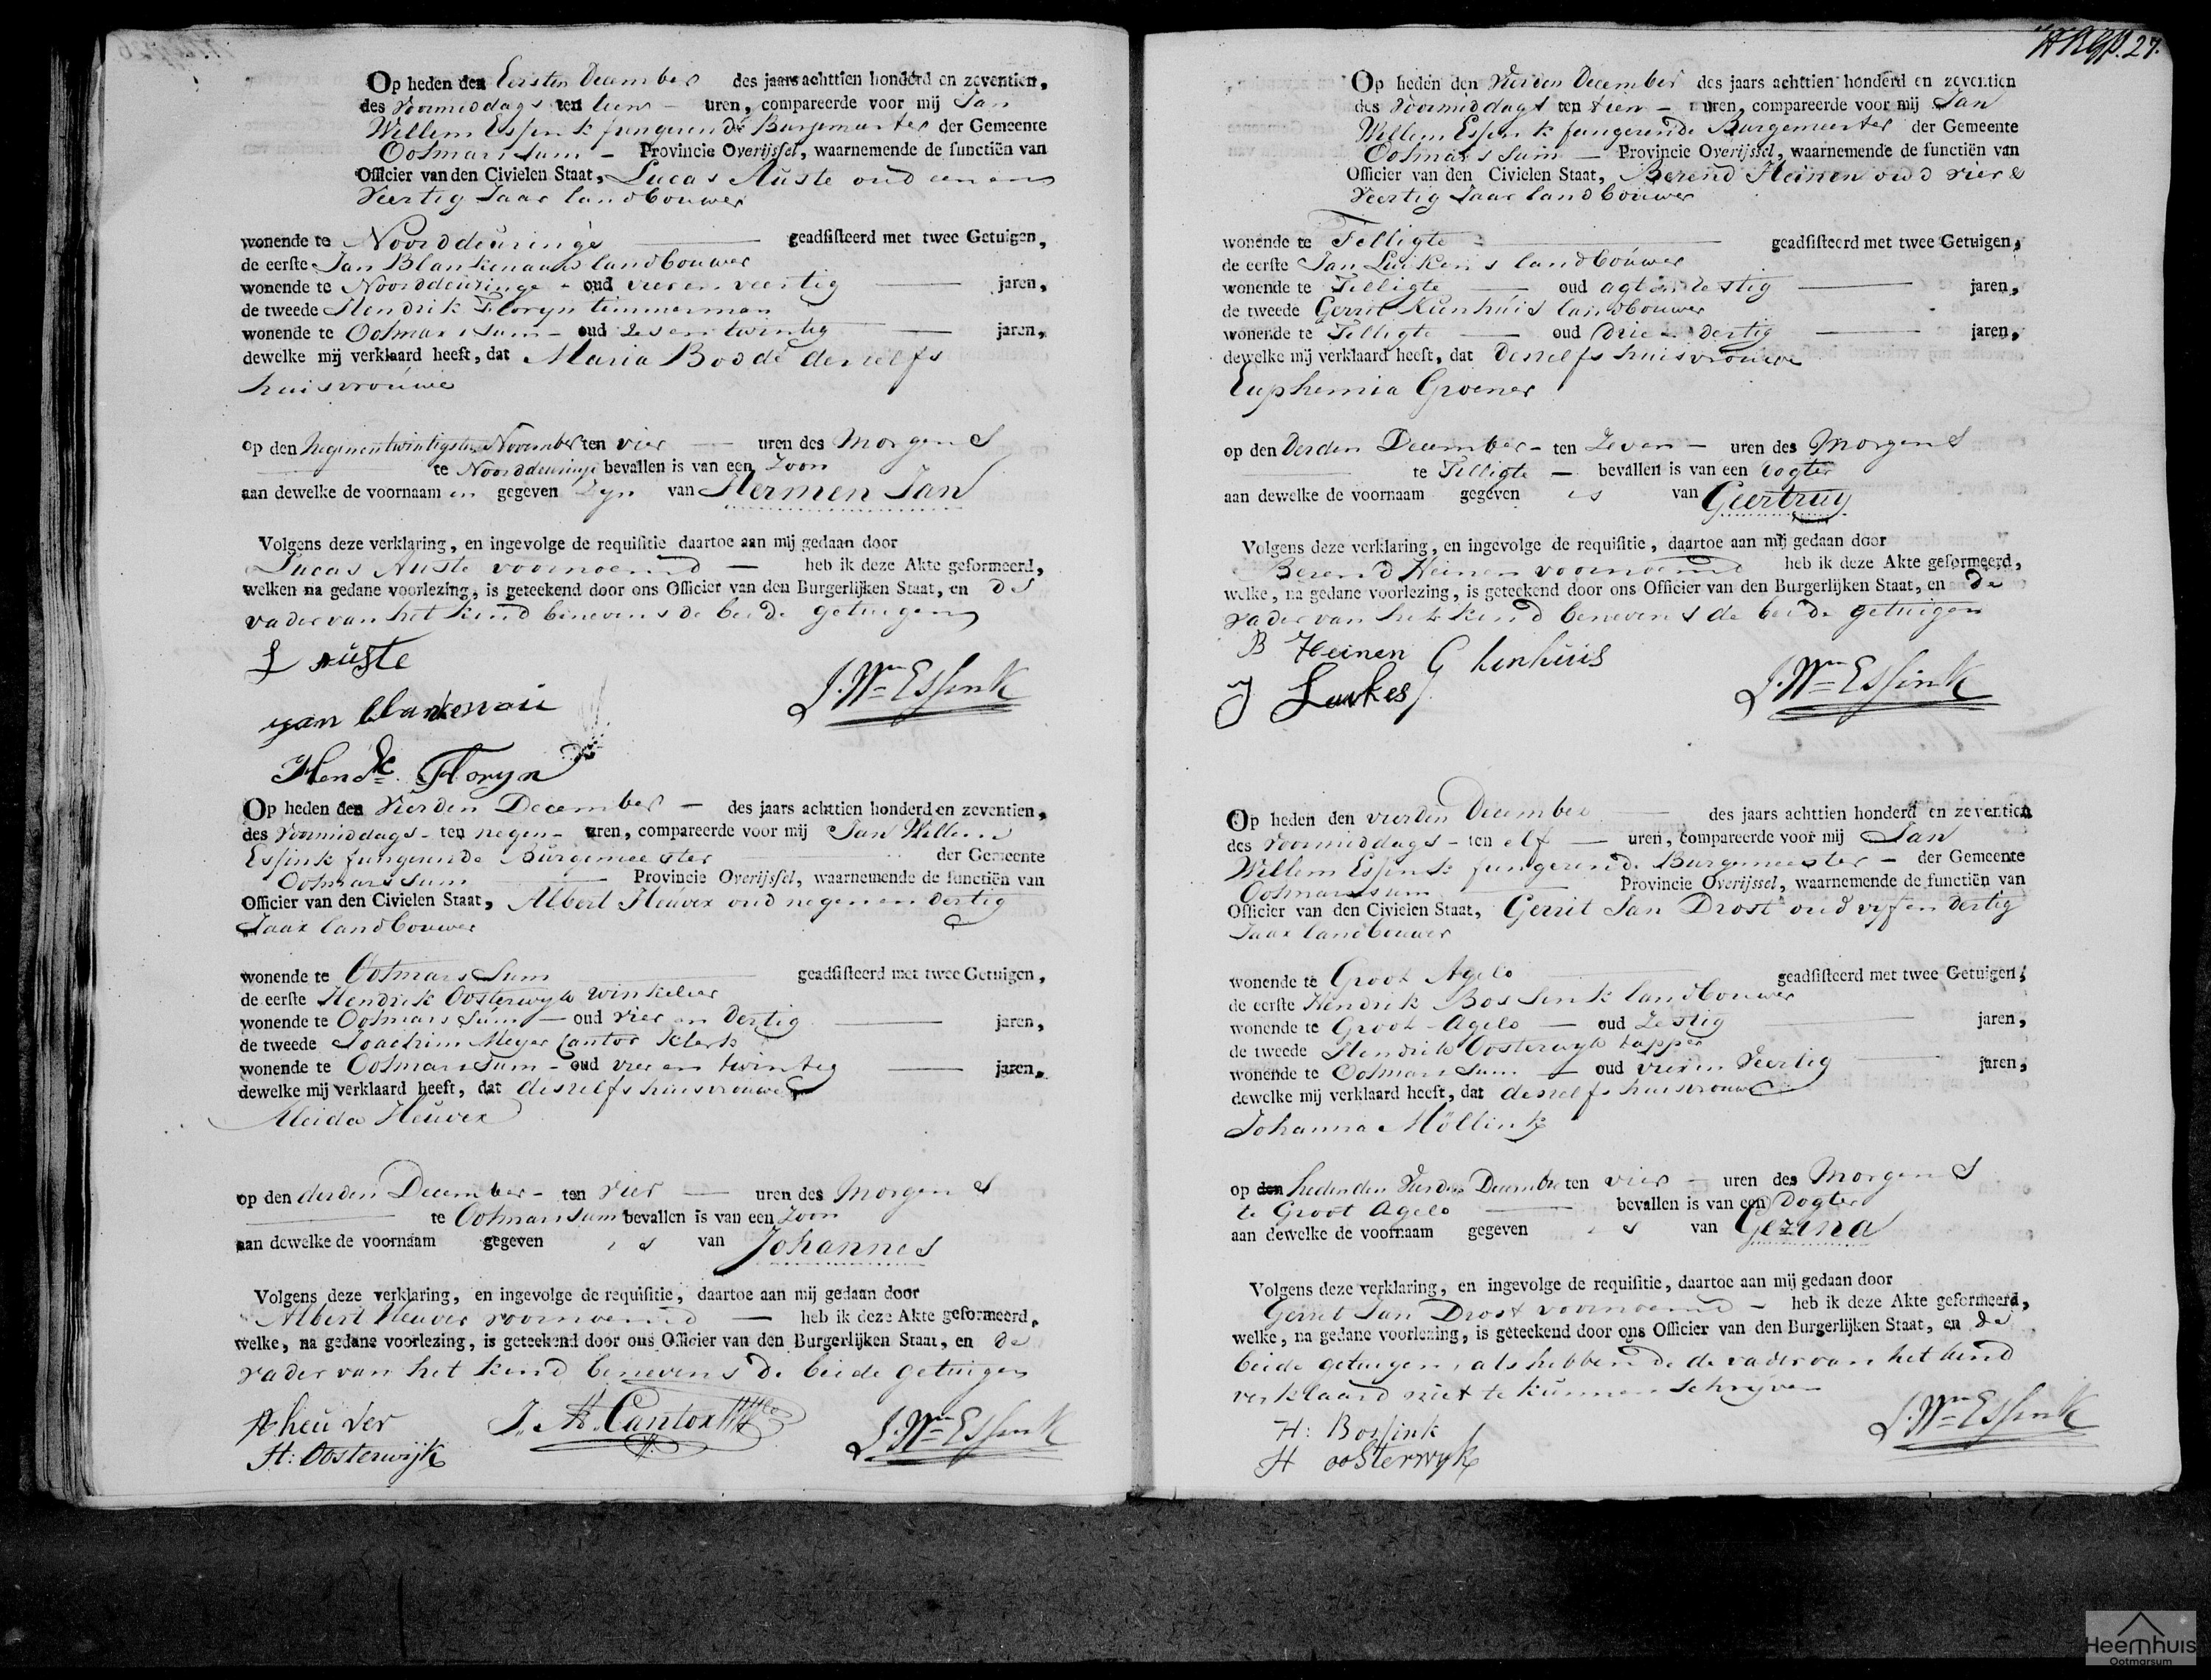 Op heden den Eersten December des jaars achttien honderd en zeventien,
des Voormiddags ten tien – uren, compareerde voor mij Jan
Willem Essink fungerende Burgemeester der Gemeente
Ootmarssum – Provincie Overijssel, waarnemende de functiën van
Officier van den Civielen Staat, Lucas Auste oud een en
Veertig Jaar landbouwer
wonende te Noorddeuringe geadsisteerd met twee Getuigen,
de eerste Jan Blankenauw landbouwer
wonende te Noorddeuringe - oud vier en veertig jaren,
de tweede Hendrik Floryn timmerman
wonende te Ootmarssum – oud Zes en twintig jaren,
dewelke mij verklaard heeft, dat Maria Bodde deszelfs
huisvrouwe
op den Negenentwintigsten November ten vier uren des Morgens
te Noorddeuringe bevallen is van een Zoon
aan dewelke de voornaamen gegeven Zyn van Hermen Jan
Volgens deze verklaring, en ingevolge de requisitie daartoe aan mij gedaan door
Lucas Auste voornoemd – heb ik deze Akte geformeerd,
welken na gedane voorlezing, is geteekend door ons Officier van den Burgerlijken Staat, en de
vader van het kind benevens de beide getuigen
L auste
J. Wm Essink
yan blankenau
Hendk Floryn
Op heden den Vierden December – des jaars achttien honderd en zeventien,
des Voormiddags - ten negen - uren, compareerde voor mij Jan Willem
Essink fungerende Burgemeester der Gemeente
Ootmarssum Provincie Overijssel, waarnemende de functiën van
Officier van den Civielen Staat, Albert Heuver oud negen en dertig
Jaar landbouwer
wonende te Ootmarssum geadsisteerd met twee Getuigen,
de eerste Hendrik Oosterwyk winkelier
wonende te Ootmarssum – oud vier en dertig jaren,
de tweede Joachim Meyer Cantor Klerk
wonende te Ootmarssum – oud vier en twintig jaren,
dewelke mij verklaard heeft, dat deszelfs huisvrouwe
Aleida Heuver
op den derden December - ten vier uren des Morgens
te Ootmarssum bevallen is van een Zoon
aan dewelke de voornaam gegeven is van Johannes
Volgens deze verklaring, en ingevolge de requisitie, daartoe aan mij gedaan door
Albert Heuver voornoemd – heb ik deze Akte geformeerd,
welke, na gedane voorlezing, is geteekend door ons Officier van den Burgerlijken Staat, en de
vader van het kind benevens de beide getuigen
A heuver J. M. Cantor
H: Oosterwijk J. Wm Essink
27.
Op heden den Vierden December des jaars achttien honderd en zeventien
des Voormiddags ten tien – uren, compareerde voor mij Jan
Willem Essink fungerende Burgemeester der Gemeente
Ootmarssum – Provincie Overijssel, waarnemende de functiën van
Officier van den Civielen Staat, Berend Heinen oud vier &
Veertig Jaar landbouwer
wonende te Tilligte geadsisteerd met twee Getuigen,
de eerste Jan Luikens landbouwer
wonende te Tilligte oud agt en destig jaren,
de tweede Gerrit Kunhuis landbouwer
wonende te Tilligte oud drie en dertig jaren,
dewelke mij verklaard heeft, dat deszelfs huisvrouwe
Euphemia Groener
op den Derden December - ten Zeven – uren des Morgens
te Tilligte – bevallen is van een dogter
aan dewelke de voornaam gegeven is van Geertruy
Volgens deze verklaring, en ingevolge de requisitie, daartoe aan mij gedaan door
Berend Heinen voornoemd heb ik deze Akte geformeerd,
welke, na gedane voorlezing, is geteekend door ons Officier van den Burgerlijken Staat, en de
vader van het kind benevens de beide getuigen
B Heinen G kunhuis
J Luikes J. Wm Essink
Op heden den vierden December des jaars achttien honderd en zeventien
des Voormiddags – ten elf – uren, compareerde voor mij Jan
Willem Essink fungerende Burgemeester – der Gemeente
Ootmarssum Provincie Overijssel, waarnemende de functiën van
Officier van den Civielen Staat, Gerrit Jan Drost oud vyf en dertig
Jaar landbouwer
wonende te Groot Agelo geadsisteerd met twee Getuigen,
de eerste Hendrik Bossink landbouwer
wonende te Groot Agelo – oud Zestig jaren,
de tweede Hendrik Oosterwyk tapper
wonende te Ootmarssum – oud vier en Veertig jaren,
dewelke mij verklaard heeft, dat deszelfs huisvrouwe
Johanna Möllink
op den heden den Vierden December ten vier – uren des Morgens
te Groot Agelo bevallen is van een Dogter
aan dewelke de voornaam gegeven is van Gezina
Volgens deze verklaring, en ingevolge de requisitie, daartoe aan mij gedaan door
Gerrit Jan Drost voornoemd – heb ik deze Akte geformeerd,
welke, na gedane voorlezing, is geteekend door ons Officier van den Burgerlijken Staat, en de
beide getuigen, als hebbende de vader van het kind
verklaard niet te kunnen schryven
H: Bossink J. Wm Essink
H oosterwyk
Heemhuis
Ootmarsum